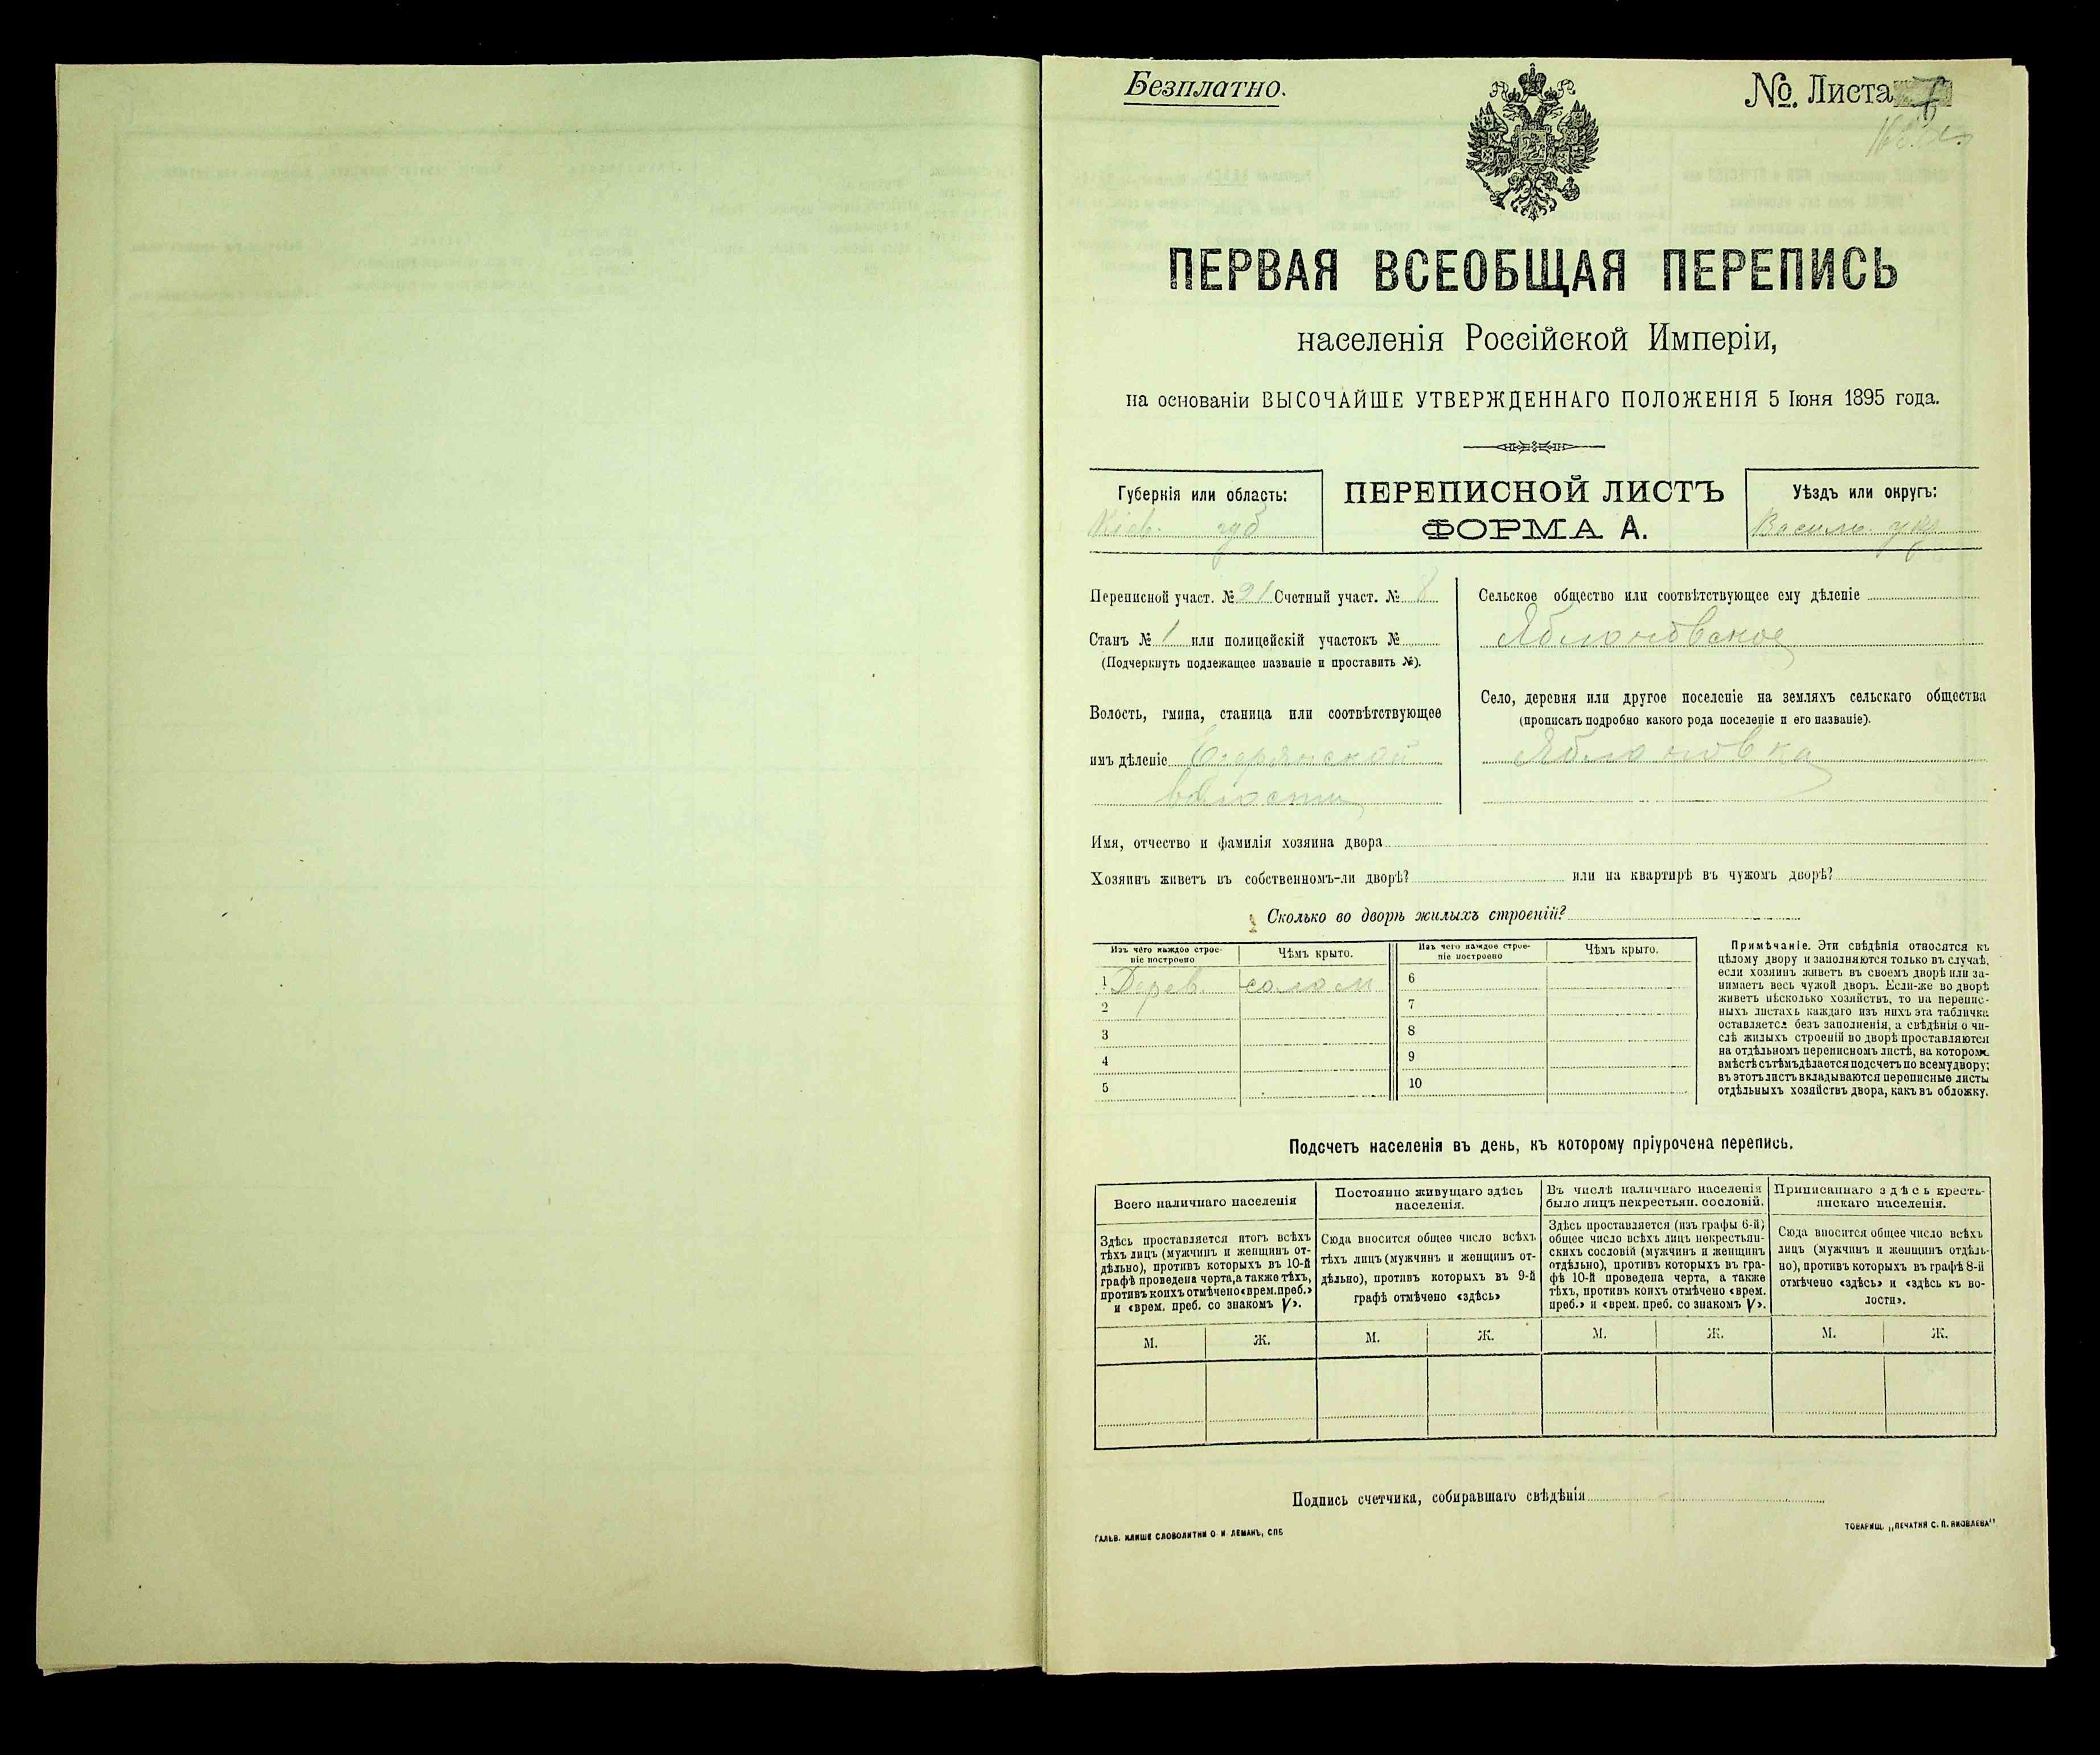 Безплатно.
№. Листа
ПЕРВАЯ ВСЕОБЩАЯ ПЕРЕПИСЬ
населенія Россійской Имперіи,
на основаніи ВЫСОЧАЙШЕ УТВЕРЖДЕННАГО ПОЛОЖЕНІЯ 5 Іюня 1895 года.
Губернія или область:
Кіев. губ
ПЕРЕПИСНОЙ ЛИСТЪ
ФОРМА А.
Уѣздъ или округъ:
Васильк.
Переписной участ. № 21 Счетный участ. № 8
Станъ № 1 или полицейскій участокъ №
(Подчеркнуть подлежащее названіе и проставить №).
Волость, гмина, станица или соотвѣтствующее
имъ дѣленіе
волости
Сельское общество или соотвѣтствующее ему дѣленіе
Яблоновское
Село, деревня или другое поселеніе на земляхъ сельскаго общества
(прописать подробно какого рода поселеніе и его названіе).
Яблоновка
Имя, отчество и фамилія хозяина двора
Хозяинъ живетъ въ собственномъ-ли дворѣ? или на квартирѣ въ чужомъ дворѣ?
Сколько во дворѣ жилыхъ строеній?
Изъ чего каждое строе-
ніе построено
Чѣмъ крыто.
Изъ чего каждое строе-
ніе построено
Чѣмъ крыто.
1 Дерев. солом 6
2 7
3 8
4 9
5 10
Примѣчаніе. Эти свѣдѣнія относятся къ
цѣлому двору и заполняются только въ случаѣ,
если хозяинъ живетъ въ своемъ дворѣ или за-
нимаетъ весь чужой дворъ. Если-же во дворѣ
живетъ нѣсколько хозяйствъ, то на перепис-
ныхъ листахъ каждаго изъ нихъ эта табличка
оставляется безъ заполненія, а свѣдѣнія о чи-
слѣ жилыхъ строеній во дворѣ проставляются
на отдѣльномъ переписномъ листѣ, на которомъ
вмѣстѣ съ тѣмъ дѣлается подсчетъ по всему двору;
въ этотъ листъ вкладываются переписные листы
отдѣльныхъ хозяйствъ двора, какъ въ обложку.
Подсчетъ населенія въ день, къ которому пріурочена перепись.
Всего наличнаго населенія
Здѣсь проставляется итогъ всѣхъ
тѣхъ лицъ (мужчинъ и женщинъ от-
дѣльно), противъ которыхъ въ 10-й
графѣ проведена черта, а также тѣхъ,
противъ коихъ отмѣчено «врем. преб.»
и «врем. преб. со знакомъ V».
Постоянно живущаго здѣсь
населенія.
Сюда вносится общее число всѣхъ
тѣхъ лицъ (мужчинъ и женщинъ от-
дѣльно), противъ которыхъ въ 9-й
графѣ отмѣчено «здѣсь»
Въ числѣ наличнаго населенія
было лицъ некрестьян. сословій.
Здѣсь проставляется (изъ графы 6-й)
общее число всѣхъ лицъ некрестьян-
скихъ сословій (мужчинъ и женщинъ
отдѣльно), противъ которыхъ въ гра-
фѣ 10-й проведена черта, а также
тѣхъ, противъ коихъ отмѣчено «врем.
преб.» и «врем. преб. со знакомъ V».
Приписаннаго здѣсь кресть-
янскаго населенія.
Сюда вносится общее число всѣхъ
лицъ (мужчинъ и женщинъ отдѣль-
но), противъ которыхъ въ графѣ 8-й
отмѣчено «здѣсь» и «здѣсь къ во-
лости».
М. Ж. М. Ж. М. Ж. М. Ж.
Подпись счетчика, собиравшаго свѣдѣнія
ГАЛЬВ. КЛИШЕ СЛОВОЛИТНИ О. И. ЛЕМАНЪ, СПБ
ТОВАРИЩ. „ПЕЧАТНЯ С. П. ЯКОВЛЕВА"